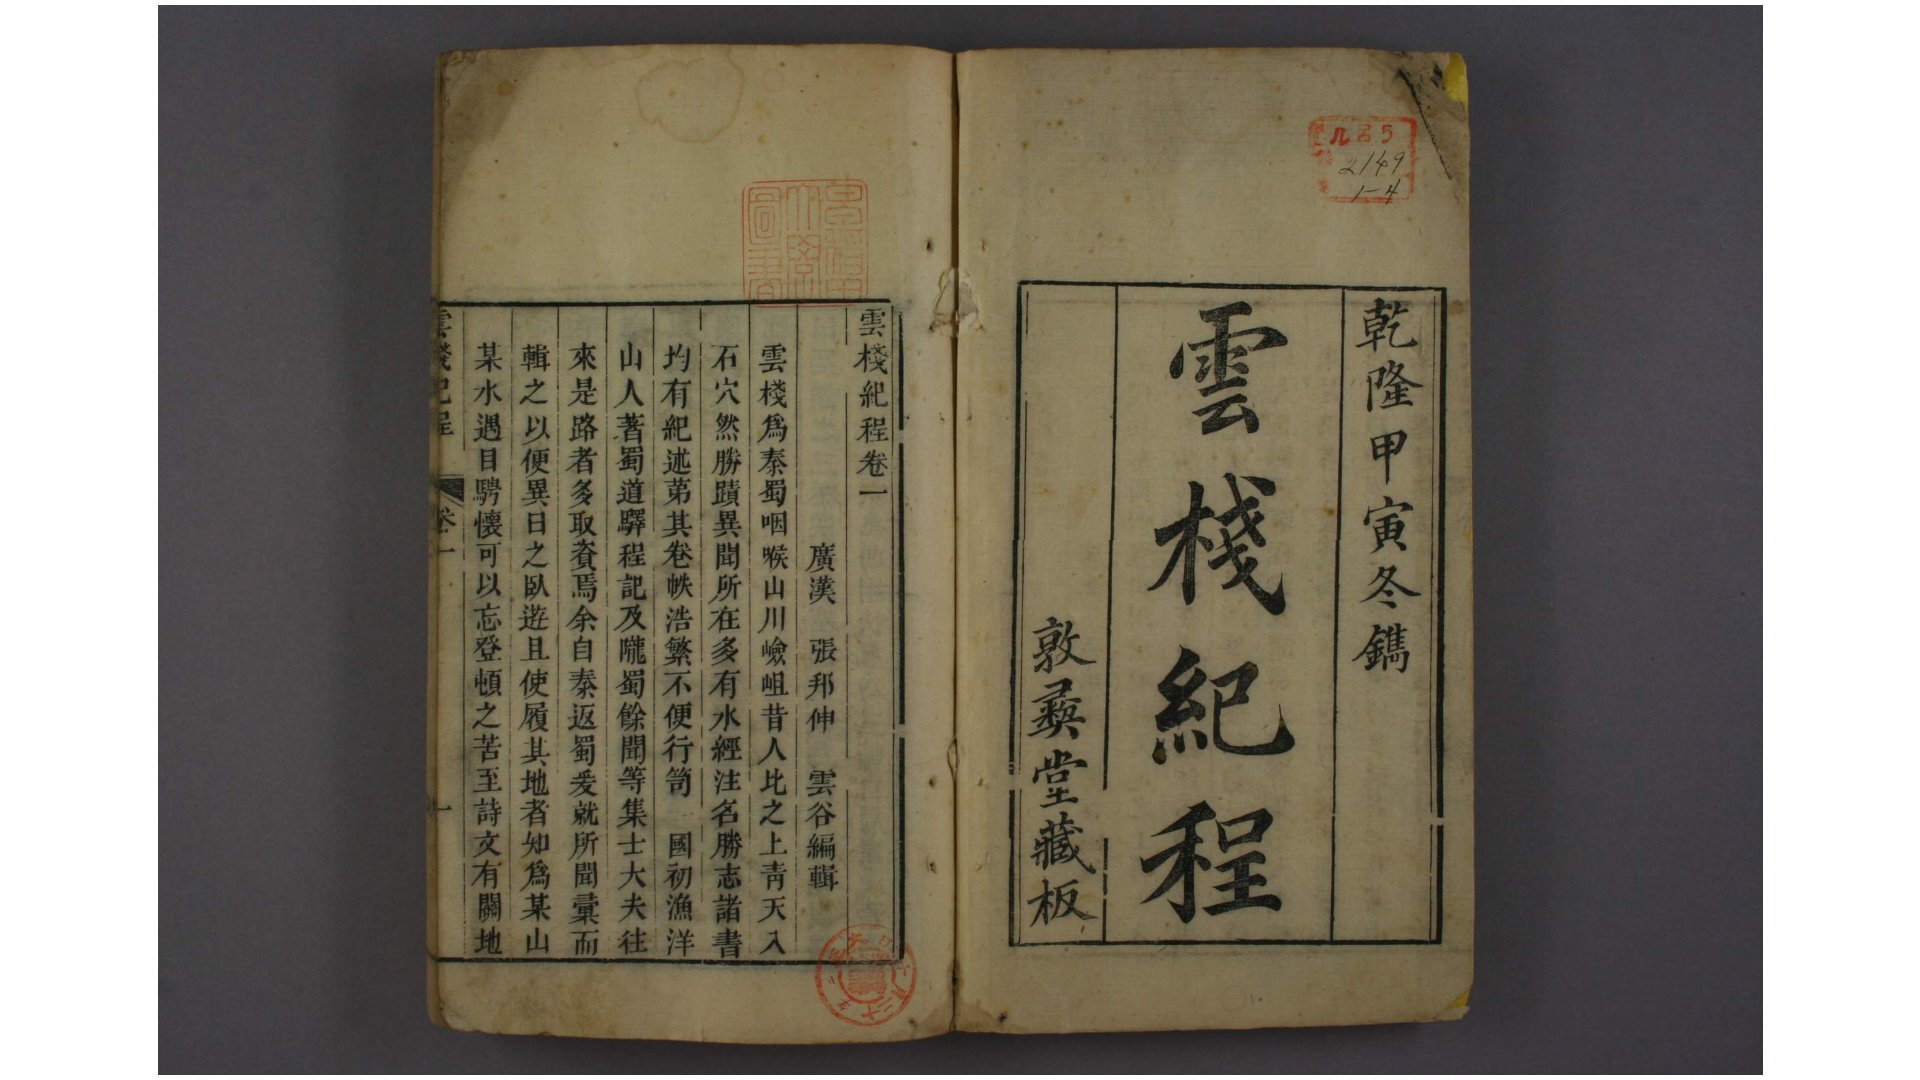 乾隆甲寅冬鐫
雲棧紀程
敦彛堂藏板
ル 5
2149
1-4
雲棧紀程卷一
廣漢 張邦伸 雲谷編輯
雲棧爲秦蜀咽喉山川嶮岨昔人比之上靑天入
石穴然勝蹟異聞所在多有水經注名勝志諸書
均有紀述第其卷帙浩繁不便行笥 國初漁洋
山人著蜀道驛程記及隴蜀餘聞等集士大夫往
來是路者多取資焉余自秦返蜀爰就所聞彙而
輯之以便異日之臥遊且使履其地者知爲某山
某水遇目騁懷可以忘登頓之苦至詩文有關地
雲棧紀程 卷一 一